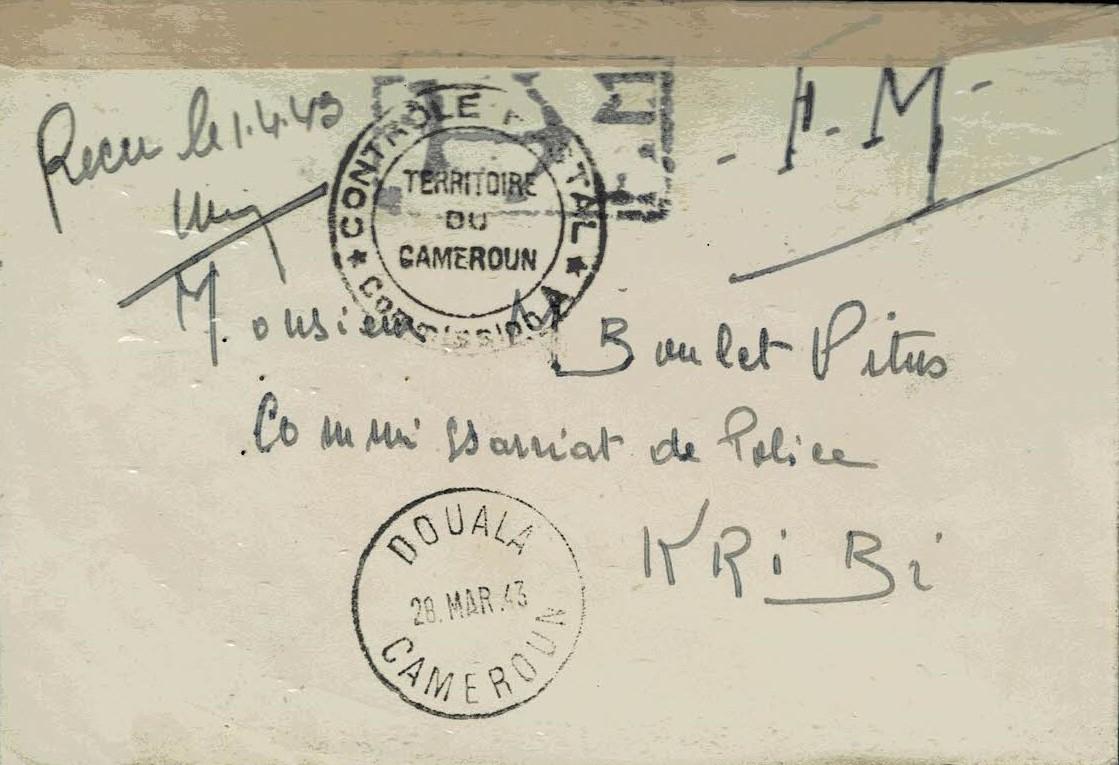 Recu le 1.4.43
F.M-
CONTRÔLE POSTAL
TERRITOIRE
DU
CAMEROUN
COMMISSION A
Monsieur Boulet Pitus
Commissarriat de Police
KRiBi
DOUALA
28.MAR.43
CAMEROUN